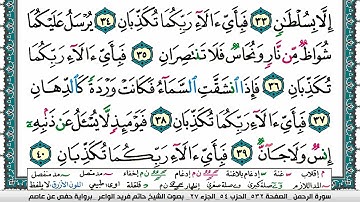 إِلَّا بِسُلْطَٰنٍ ٣٣ فَبِأَيِّ ءَالَآءِ رَبِّكُمَا تُكَذِّبَانِ ٣٤ يُرْسَلُ عَلَيْكُمَا
شُوَاظٌ مِّن نَّارٍ وَنُحَاسٌ فَلَا تَنتَصِرَانِ ٣٥ فَبِأَيِّ ءَالَآءِ رَبِّكُمَا
تُكَذِّبَانِ ٣٦ فَإِذَا ٱنشَقَّتِ ٱلسَّمَآءُ فَكَانَتْ وَرْدَةً كَٱلدِّهَانِ
٣٧ فَبِأَيِّ ءَالَآءِ رَبِّكُمَا تُكَذِّبَانِ ٣٨ فَيَوْمَئِذٍ لَّا يُسْـَٔلُ عَن ذَنۢبِهِۦٓ
إِنسٌ وَلَا جَآنٌّ ٣٩ فَبِأَيِّ ءَالَآءِ رَبِّكُمَا تُكَذِّبَانِ ٤٠
سورة الرحمن الصفحة ٥٣٢ الحزب ٥٤ الجزء ٢٧ بصوت الشيخ حاتم فريد الواعر برواية حفص عن عاصم